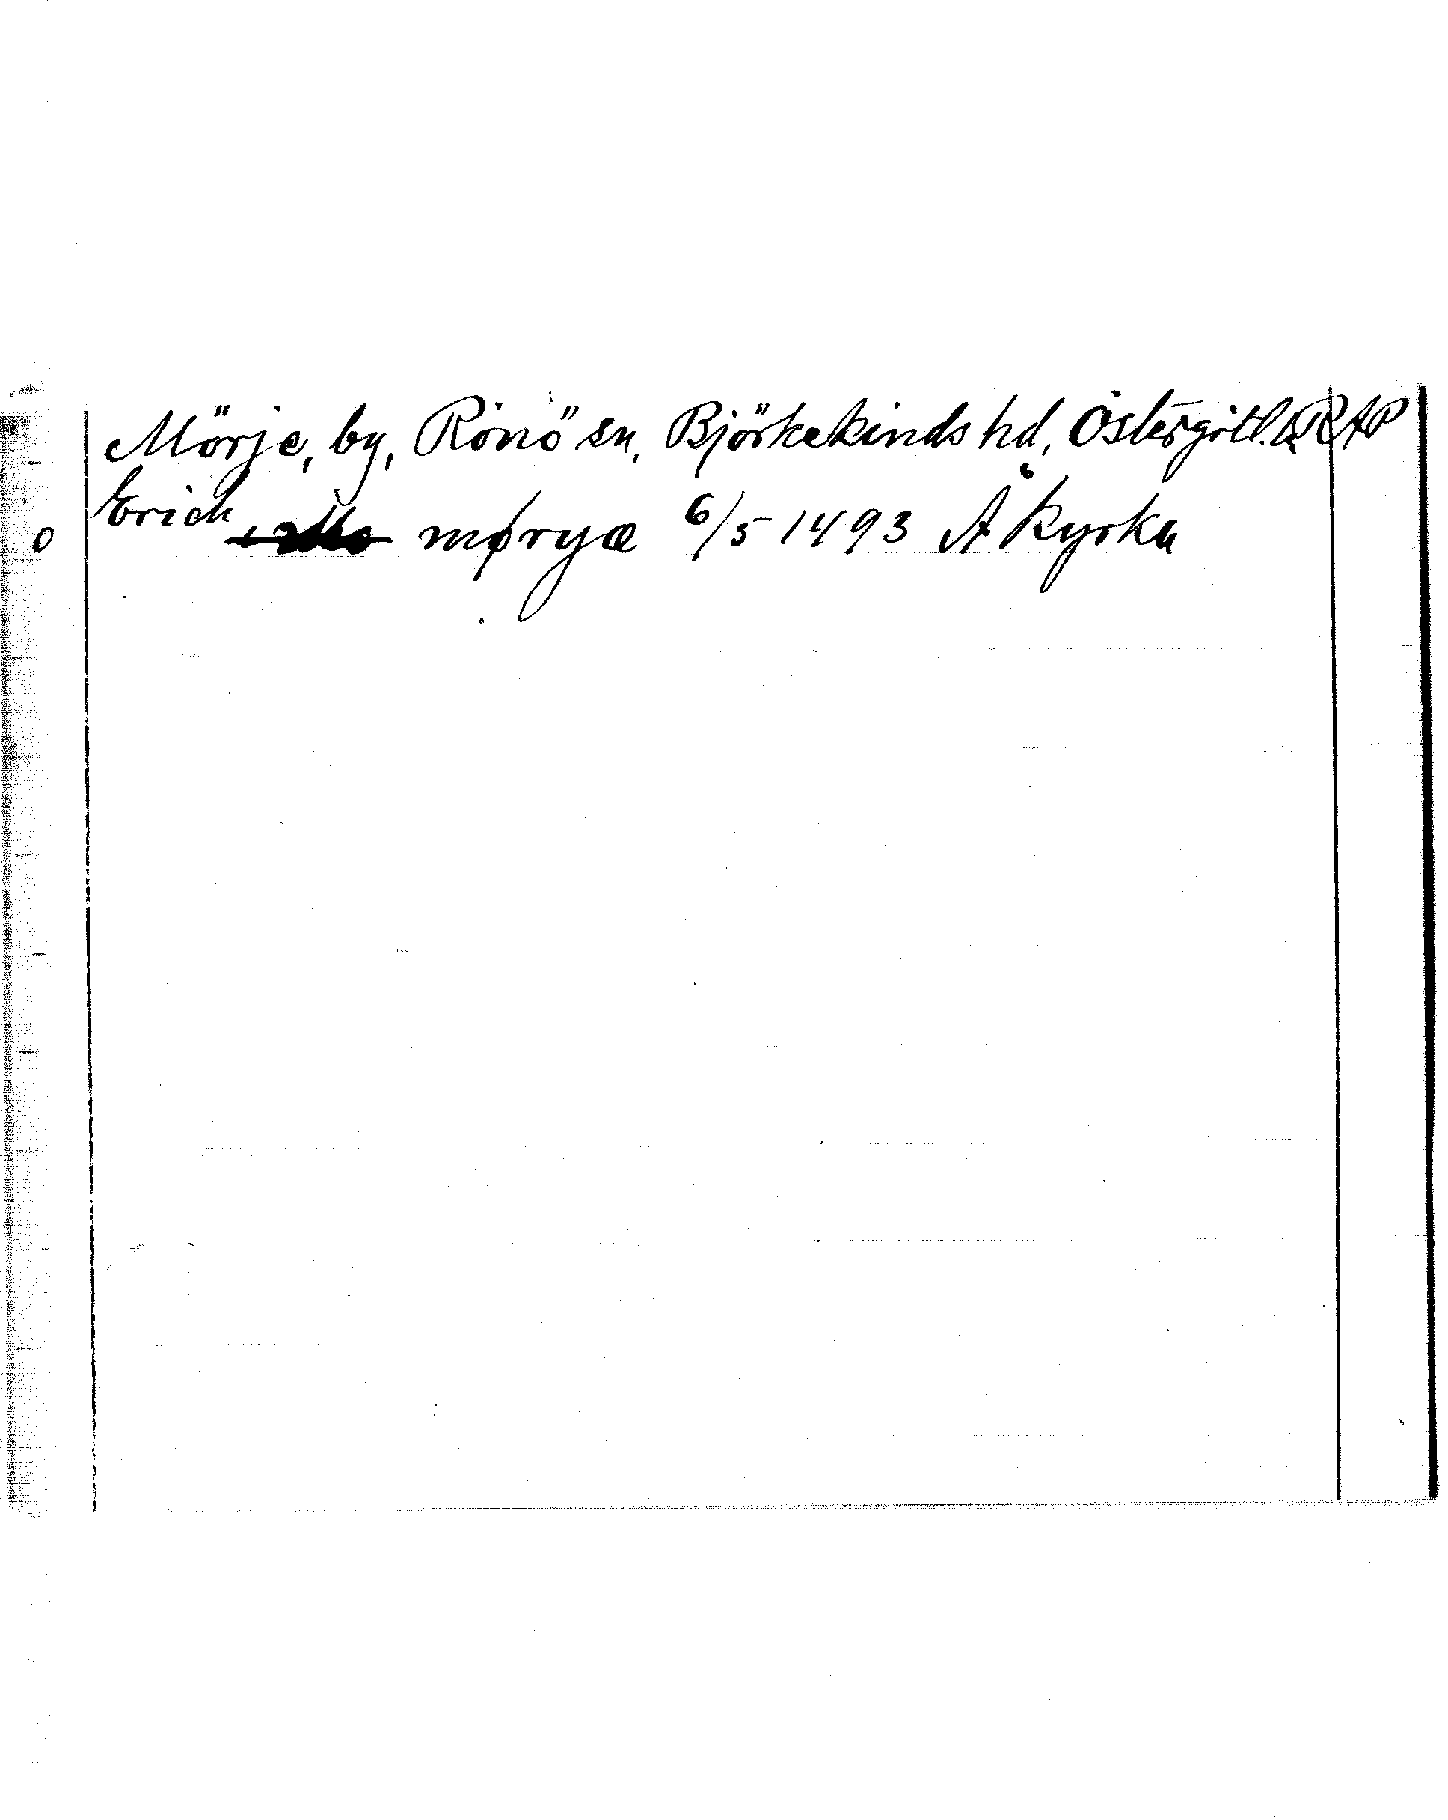 Mörje, by, Rönö sn, Björkekinds hd, Östergötl. RAP
o Erich møryæ 6/5 1493 Å kyrka